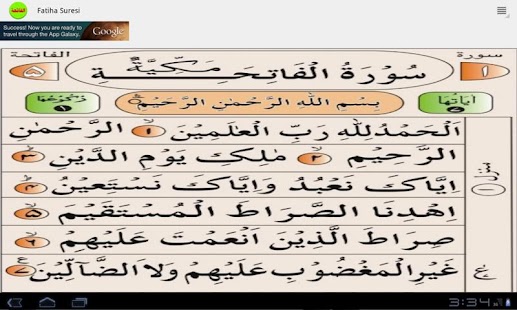 الفاتحة Fatiha Suresi
Success! Now you are ready to
travel through the App Galaxy.
Google
سورة الفاتحة
١ سُوْرَةُ الْفَاتِحَةِ مَكِّيَّةٌ ٥
اٰيَاتُهَا ٧ بِسْمِ اللهِ الرَّحْمٰنِ الرَّحِيْمِ رُكُوْعُهَا ١
اَلْحَمْدُ لِلّٰهِ رَبِّ الْعٰلَمِيْنَ ١ الرَّحْمٰنِ
الرَّحِيْمِ ٢ مٰلِكِ يَوْمِ الدِّيْنِ ٣
اِيَّاكَ نَعْبُدُ وَاِيَّاكَ نَسْتَعِيْنُ ٤
اِهْدِنَا الصِّرَاطَ الْمُسْتَقِيْمَ ٥
صِرَاطَ الَّذِيْنَ اَنْعَمْتَ عَلَيْهِمْ ٦
غَيْرِ الْمَغْضُوْبِ عَلَيْهِمْ وَلَا الضَّآلِّيْنَ ٧
منزل ١
ع
3:34